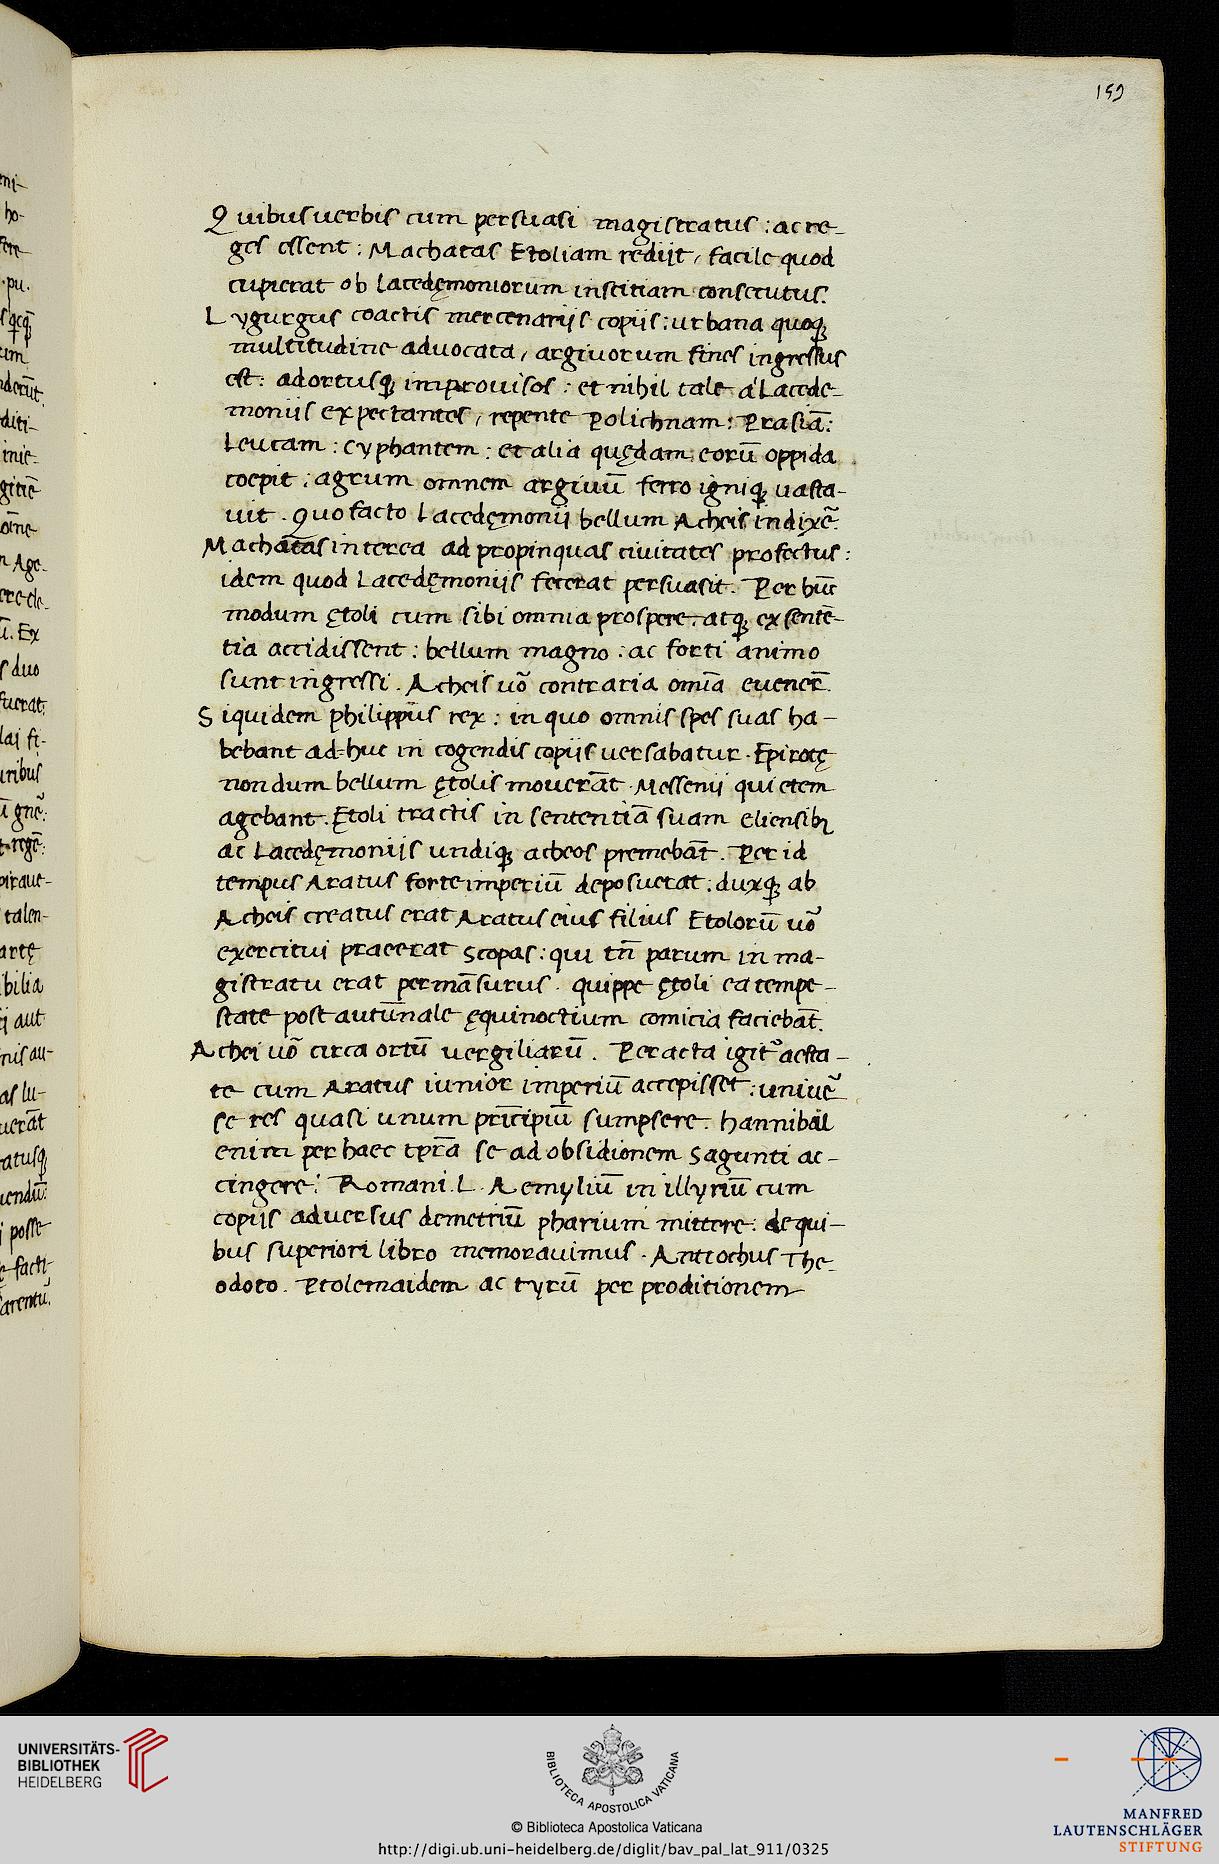 159
Quibus uerbis cum persuasi magistratus : ac re-
ges essent : Machatas Etoliam rediit, facile quod
cupierat ob Lacedęmoniorum inscitiam consecutus.
Lygurgus coactis mercenariis copiis : urbana quoq;
multitudine aduocata, argiuorum fines ingressus
est : adortusq; improuisos : et nihil tale a Lacede-
moniis expectantes, repente Polichnam : Prasiā :
Leucam : Cyphantem : et alia quędam eorū oppida
coepit : agrum omnem argiuū ferro igniq; uasta-
uit. Quo facto Lacedęmonii bellum Acheis indixē.
Machatas interea ad propinquas ciuitates profectus :
idem quod Lacedęmoniis fecerat persuasit. Per hūc
modum ętoli cum sibi omnia prospere. atq; ex sentē-
tia accidissent : bellum magno : ac forti animo
sunt ingressi. Acheis uo̅ contraria omīa euener̄.
Siquidem philippus rex : in quo omnis spes suas ha-
bebant ad-huc in cogendis copiis uersabatur. Epirotę
nondum bellum ętolis mouerāt. Messenii quietem
agebant. Ętoli tractis in sententiā suam eliensibꝫ
ac Lacedęmoniis undiq; acheos premebāt. Per id
tempus Aratus forte imperiū deposuerat : duxq; ab
Acheis creatus erat Aratus eius filius Etolorū uo̅
exercitui praeerat Scopas : qui tn̄ parum in ma-
gistratu erat permāsurus. quippe ętoli ea tempe-
state post autūnale ęquinoctium comicia faciebāt.
Achei uo̅ circa ortū uergiliarū. Peracta igit᷑ aesta-
te cum Aratus iunior imperiū accepisset : uniuē
se res quasi unum prīcipiū sumpsere. hannibal
enim per haec tp̄ra se ad obsidionem Sagunti ac-
cingere : Romani. L. Aemyliū in illyriū cum
copiis aduersus demetriū pharium mittere : de qui-
bus superiori libro memorauimus. Antiochus The-
odoto. Ptolemaidem ac tyrū per proditionem
UNIVERSITÄTS-
BIBLIOTHEK
HEIDELBERG
BIBLIOTECA APOSTOLICA VATICANA
© Biblioteca Apostolica Vaticana
http://digi.ub.uni-heidelberg.de/diglit/bav_pal_lat_911/0325
MANFRED
LAUTENSCHLÄGER
STIFTUNG